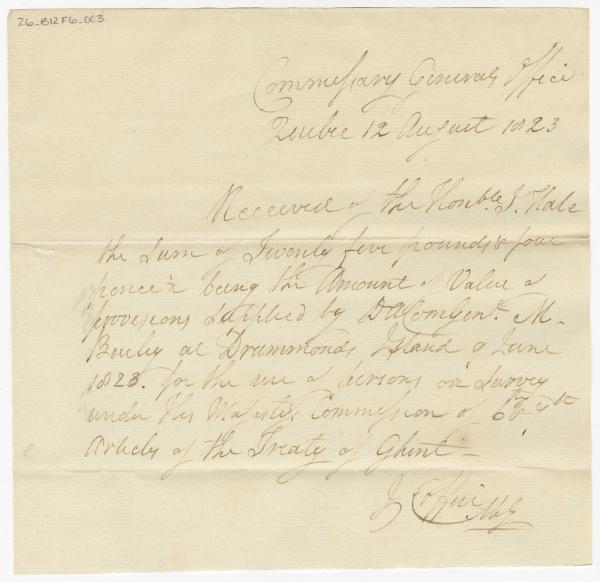 26-B12F6-003
Commissary Generals Office
Quebec 12 August 1823
Received of the Honble. J. Hale
the Sum of Twenty five pounds & four
pence being the Amount of Value of
provisions Supplied by
at Drummonds Island 9 June
1823. for the use of persons on Survey
under His Majestys Commission of 6th & 7th
Articles of the Treaty of Ghent —
J Coffin